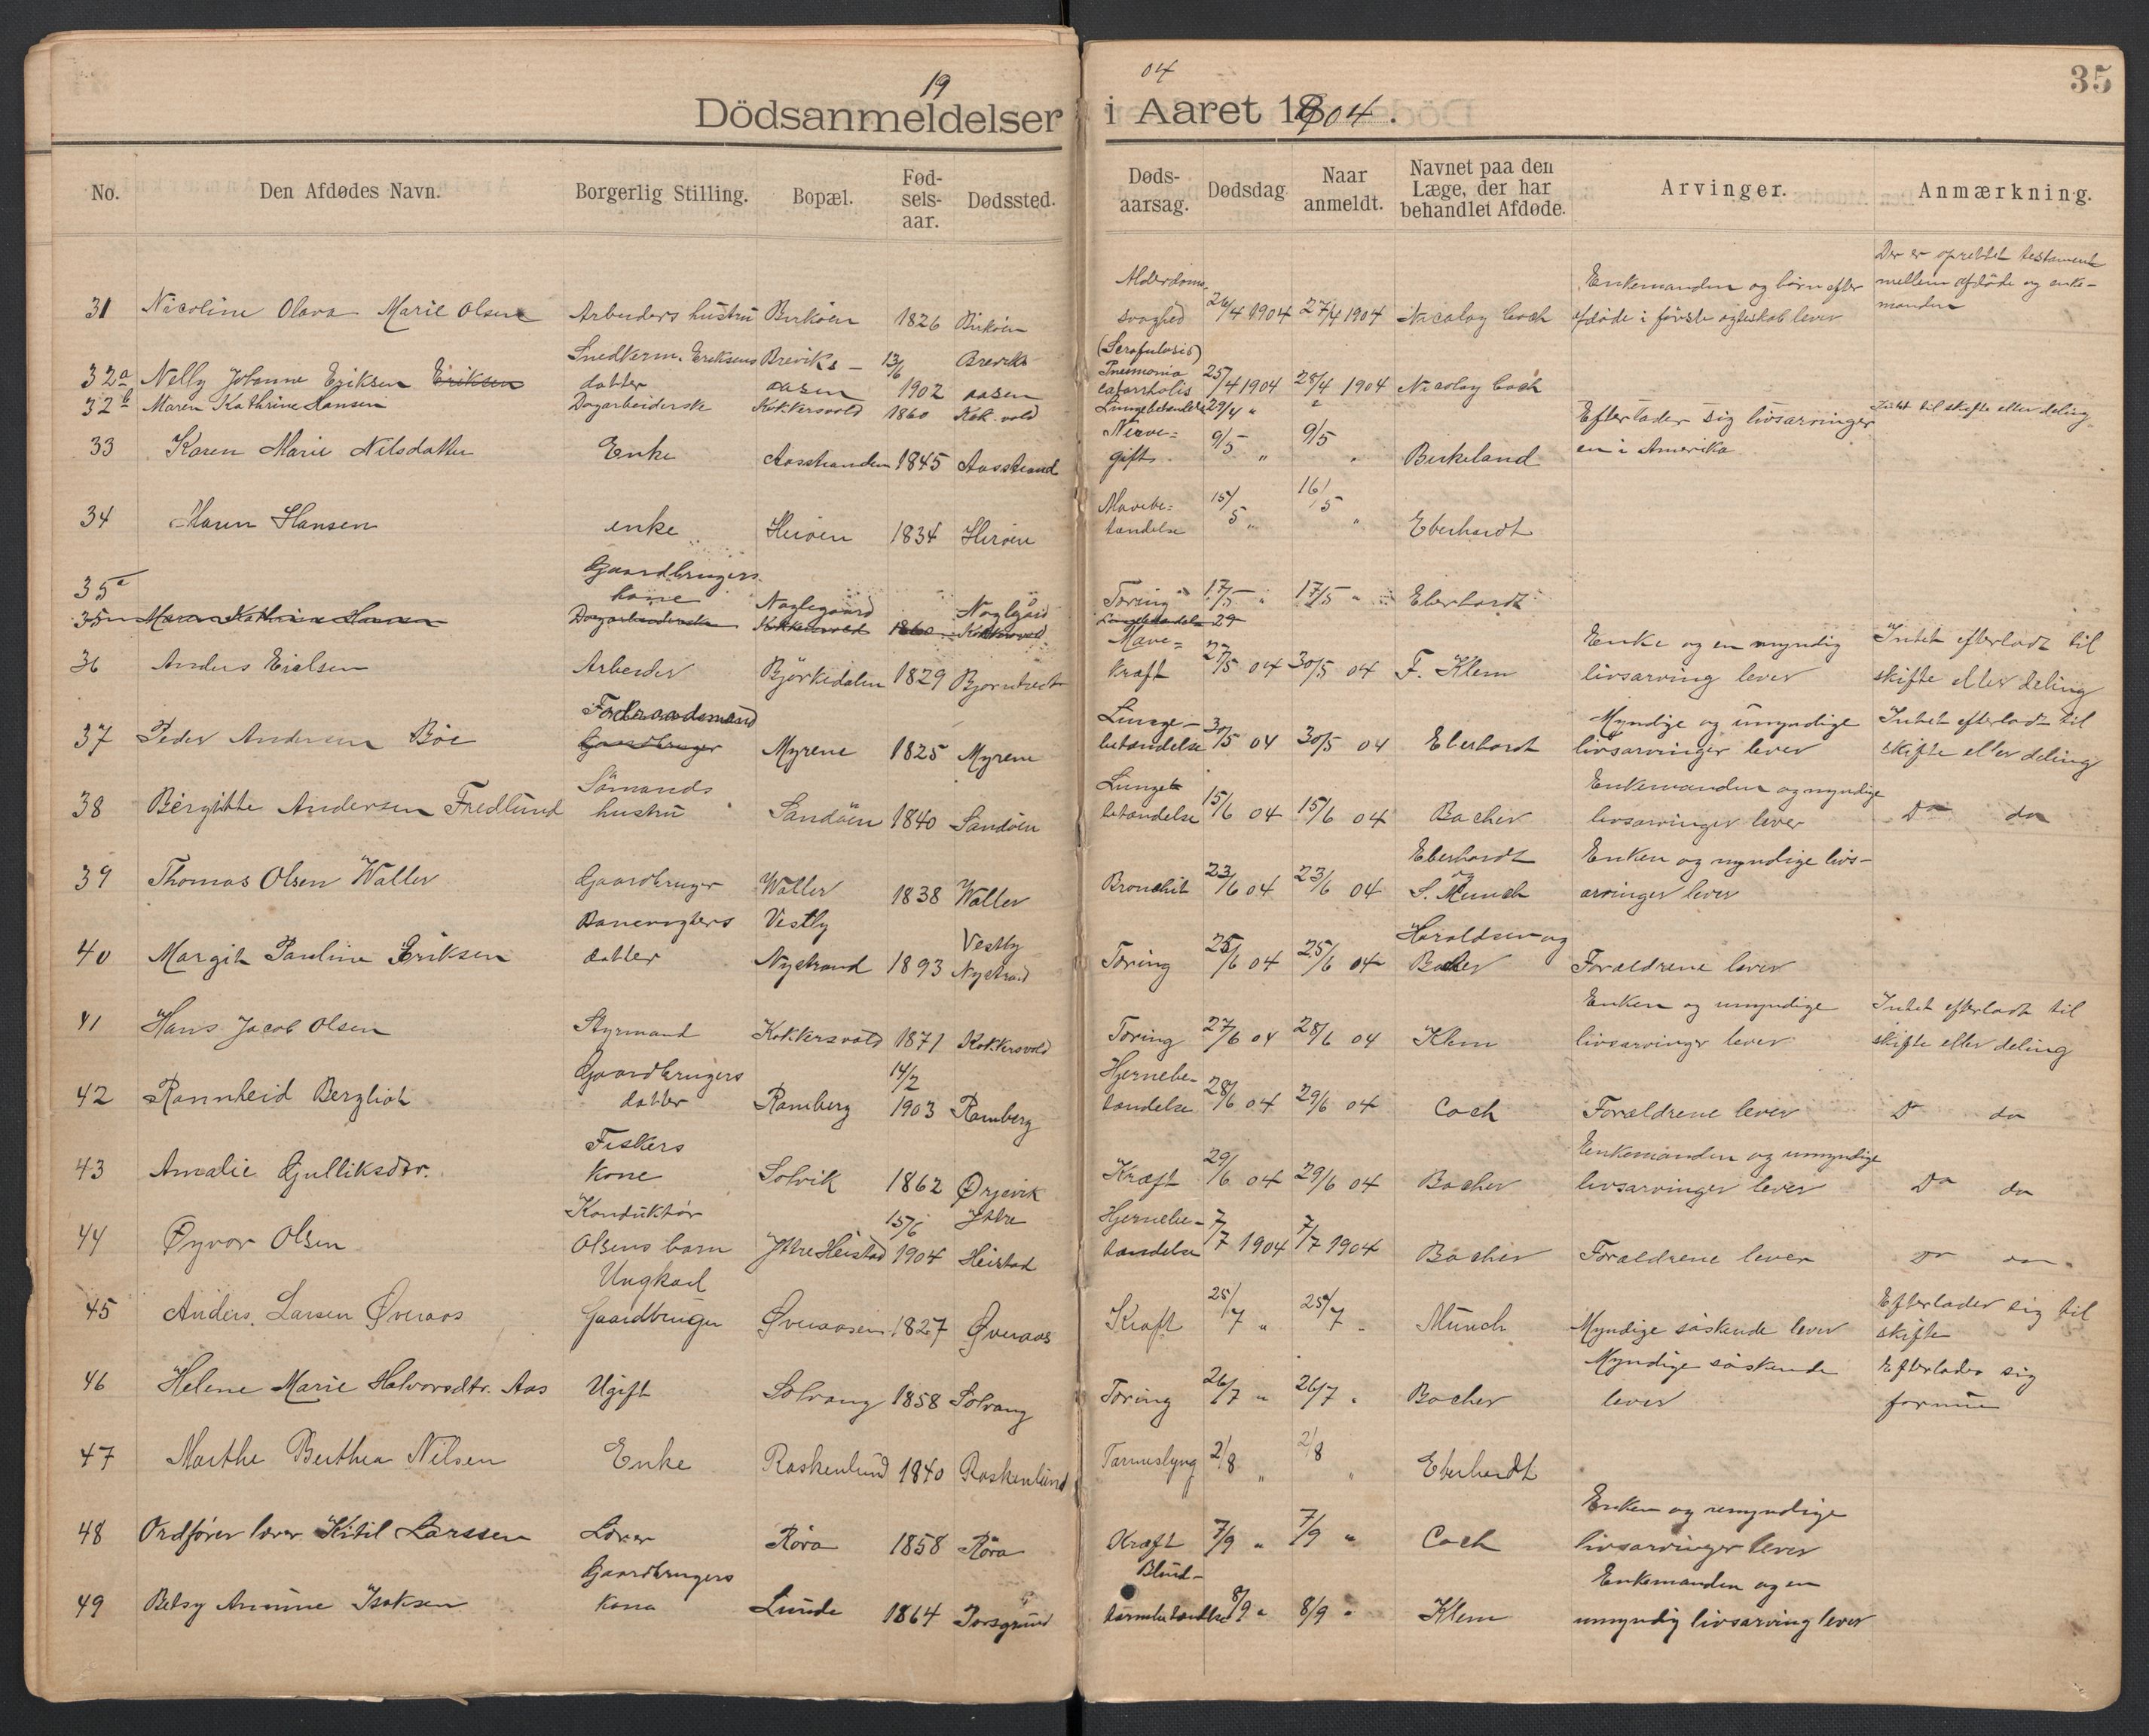 19 04
35
Dödsanmeldelser i Aaret 1904.
No. Den Afdødes Navn. Borgerlig Stilling. Bopæl. Fødselsaar. Dødssted. Dødsaarsag. Dødsdag Naar anmeldt. Navnet paa den Læge, der har behandlet Afdøde. Arvinger. Anmærkning.
31 Nicoline Olava Marie Olsen Arbeiders hustru Birköen 1826 Birköen Alderdomssvaghed 26/4 1904 27/4 1904 Nicolay Coch Enkemanden og börn efter afdöde i förste egteskab lever Der er oprettet testament mellem afdöde og enkemanden
32a Nelly Johanne Eriksen Eriksen Snedkerm. Eriksens datter Breviks-aasen 13/6 1902 Breviksaasen (Scrofulosis) Pneimonia catarrhalis 25/4 1904 28/4 1904 Nicolay Coch
32b Maren Kathrine Hansen Dagarbeiderske Kokkersvold 1860 Kok.vold Lungebetændelse 29/4 " "
33 Karen Marie Nilsdatter Enke Aasstranden 1845 Aasstrand Nerve=gift 9/5 " 9/5 " Birkeland Efterlader sig livsarvinger en i Amerika Intet til skifte eller deling
34 Maren Hansen enke Heröen 1834 Heröen Mavebe=tændelse 15/5 " 16/5 " Eberhardt
35a Gaardbrugers kone Nøglegaard Nøglegård Tæring 17/5 " 17/5 " Eberhardt
35 Maren Kathrine Hansen Dagarbeiderske Kokkersvold 1860 Kokkersvold Lungebetændelse 29
36 Anders Eielsen Arbeider Björkedalen 1829 Mave=kræft 27/5 04 30/5 04 F. Klem Enke og en myndig livsarving lever Intet efterladt til skifte eller deling
37 Peder Andersen Böe Foderaadsmand Gaardbruger Myrene 1825 Myrene Lunge-betændelse 30/5 04 30/5 04 Eberhardt Myndige og umyndige livsarvinger lever Intet efterladt til skifte eller deling
38 Birgitte Andersen Fredlund Sömands hustru Sandöen 1840 Sandöen Lungebetændelse 15/6 04 15/6 04 Bacher Enkemanden og myndige livsarvinger lever Do do
39 Thomas Olsen Valler Gaardbruger Valler 1838 Valler Bronchit 23/6 04 23/6 04 Eberhardt og S. Munch Enken og myndige livs-arvinger lever
40 Margit Pauline Eriksen Banevogters datter Vestby Nystrand 1893 Vestby Nystrand Tæring 25/6 04 25/6 04 Haraldsen og Bacher Forældrene lever
41 Hans Jacob Olsen Styrmand Kokkersvold 1871 Kokkersvold Tæring 27/6 04 28/6 04 Klem Enken og umyndige livsarvinger lever Intet efterladt til skifte eller deling
42 Rannheid Bergliot Gaardbrugers datter Ramberg 14/2 1903 Ramberg Hjernebe-tændelse 28/6 04 29/6 04 Coch Forældrene lever Do do
43 Amalie Gjulliksdtr. Fiskers kone Solvik 1862 Ørjevik Kræft 29/6 04 29/6 04 Bacher Enkemanden og umyndige livsarvinger lever Do do
44 Øyvor Olsen Konduktör Olsens barn Ytre Heistad 15/6 1904 Ytre Heistad Hjernebe-tændelse 7/7 1904 7/7 1904 Bacher Forældrene lever Do do
45 Anders Larsen Øveraas Ungkarl Gaardbruger Øveraasen 1827 Øveraas Kræft 25/7 " 25/7 " Münch Myndige söskende lever Efterlader sig til skifte
46 Helene Marie Halvorsdtr. Aas Ugift Solvang 1858 Solvang Tæring 26/7 " 26/7 " Bacher Myndige söskende lever Efterlader sig formue
47 Marthe Berthea Nilsen Enke Raskenlund 1840 Raskenlund Tarmeslyng 2/8 " 2/8 " Eberhardt
48 Ordförer lærer Kitil Larssen Lærer Röra 1858 Röra Kræft 7/9 " 7/9 " Coch Enken og umyndige livsarvinger lever
49 Betsy Annine Isaksen Gaardbrugers kona Lunde 1864 Porsgrund Blind-tarmbetændelse 8/9 " 8/9 " Klem Enkemanden og en umyndig livsarving lever